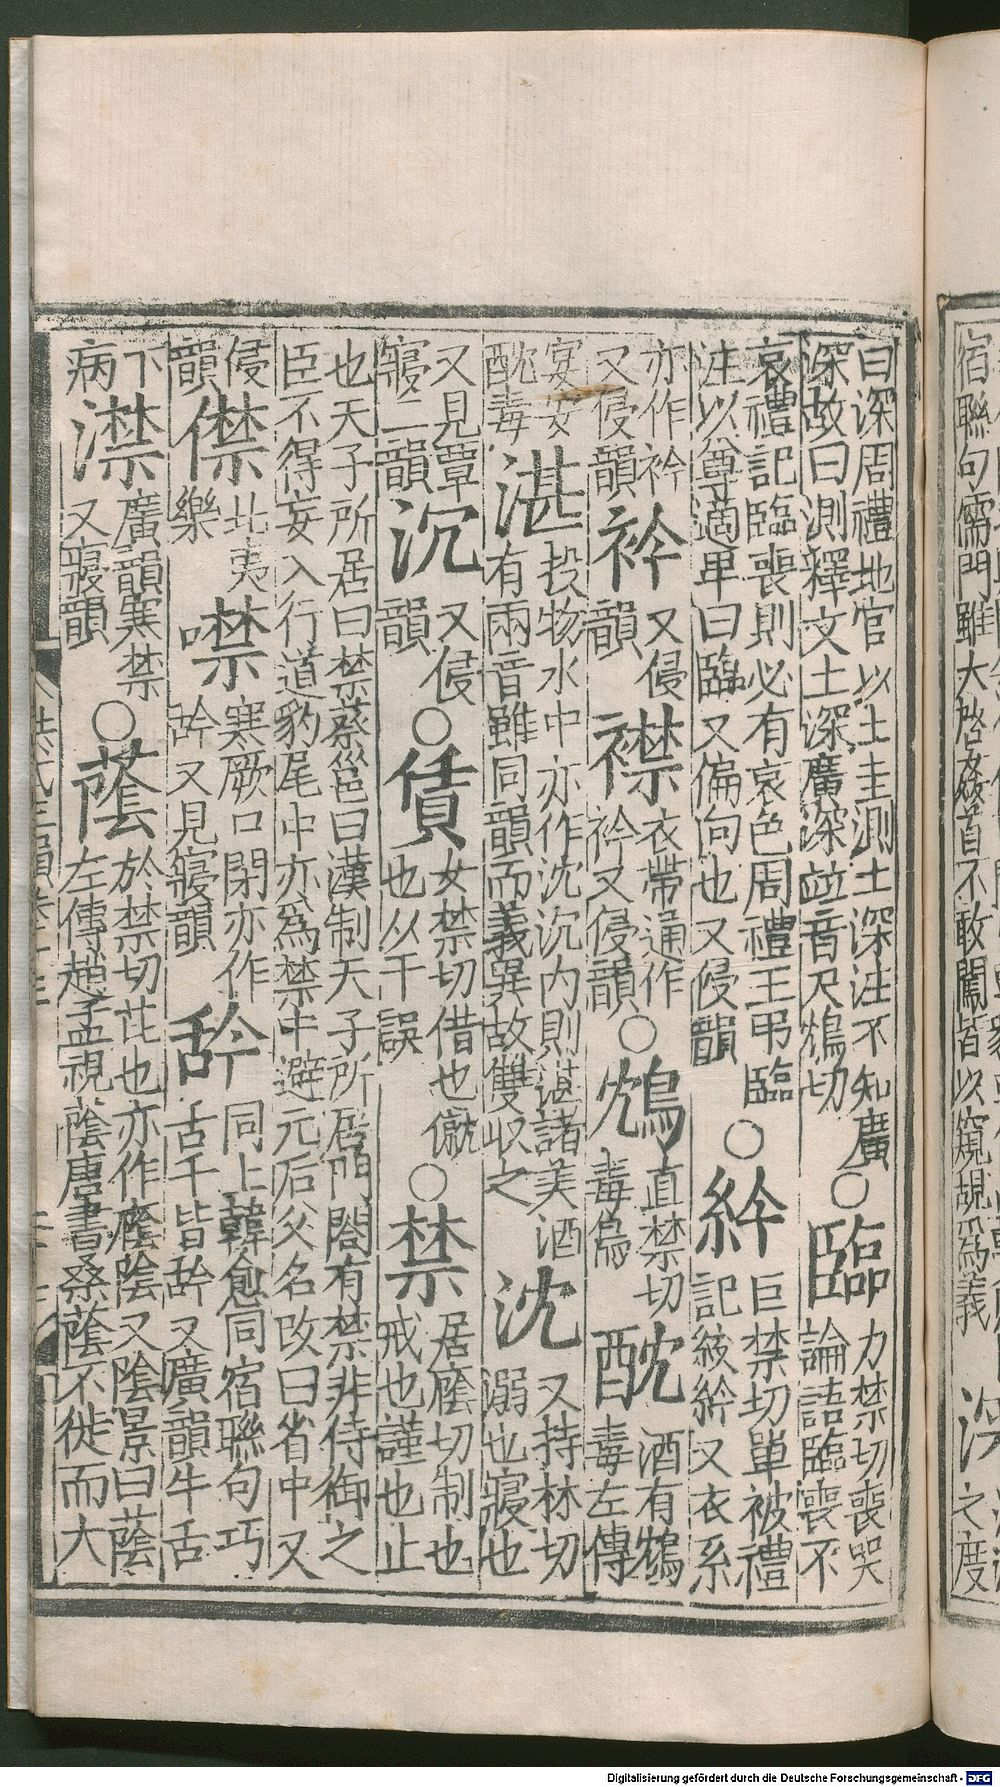 宿聯句儒門雖大啓姦首不敢闖皆以窺覘爲義
深
之度
曰深周禮地官以土圭測土深注不知廣
深故曰測釋文土深廣深竝音尺鴆切
○臨
力禁切喪哭
論語臨喪不
哀禮記臨喪則必有哀色周禮王弔臨
注以尊適卑曰臨又偏向也又侵韻
○紟
巨禁切單被禮
記絞紟又衣系
亦作衿
又侵韻
衿
又侵
韻
襟
衣帶通作
衿又侵韻
○鴆
直禁切
毒鳥
酖
酒有鴆
毒左傳
宴安
酖毒
湛
投物水中亦作沈沉内則湛諸美酒
有兩音雖同韻而義異故雙收之
沈
又持林切
溺也寢也
又見覃
寢二韻
沉
又侵
韻
○賃
女禁切借也僦
也从干誤
○禁
居廕切制也
戒也謹也止
也天子所居曰禁蔡邕曰漢制天子所居門閤有禁非侍御之
臣不得妄入行道豹尾中亦爲禁中避元后父名改曰省中又
侵
韻
僸
北夷
樂
噤
寒厥口閉亦作
又見寢韻
䑤
同上韓愈同宿聯句巧
舌千皆䑤又廣韻牛舌
下
病
澿
廣韻寒禁
又寢韻
○蔭
於禁切芘也亦作廕陰又陰景曰蔭
左傳趙孟視蔭唐書桑蔭不徙而大
Digitalisierung gefördert durch die Deutsche Forschungsgemeinschaft - DFG